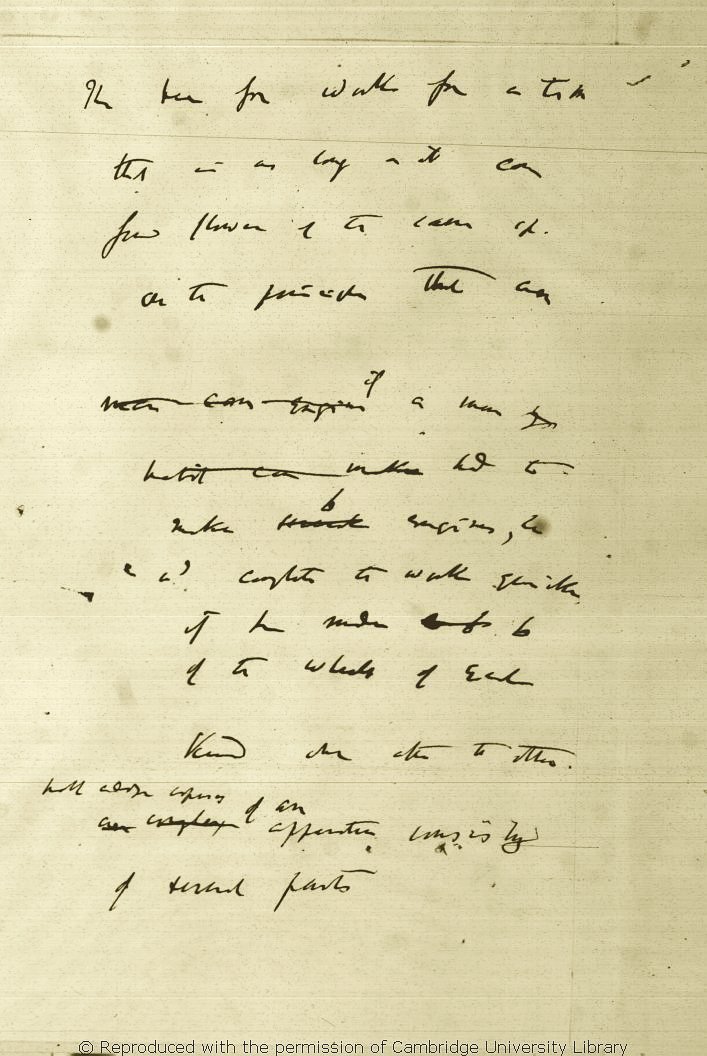 The bee for works for a time
that is as long as it can
from flowers of the same sp.
on the principle that
if a man
habit can makes had to
make 6 engines, he
wd complete the work quicker
if he made 6
of the wheels of each
kind one after the other.
of an
apparatus consisting
of several parts
© Reproduced with the permission of Cambridge University Library